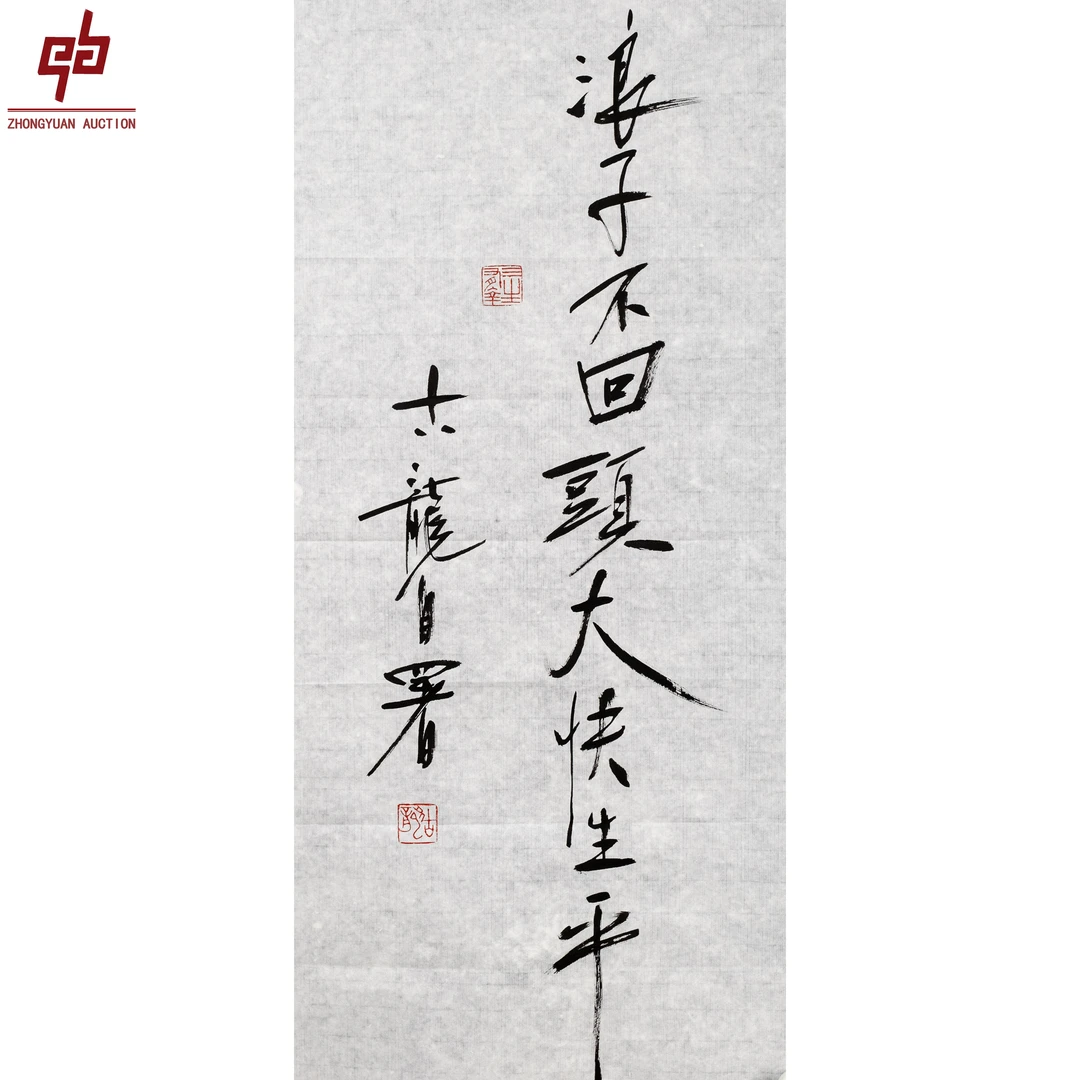 ZHONGYUAN AUCTION
浪子不回頭大快生平
三生有幸
古龍自署
古龍